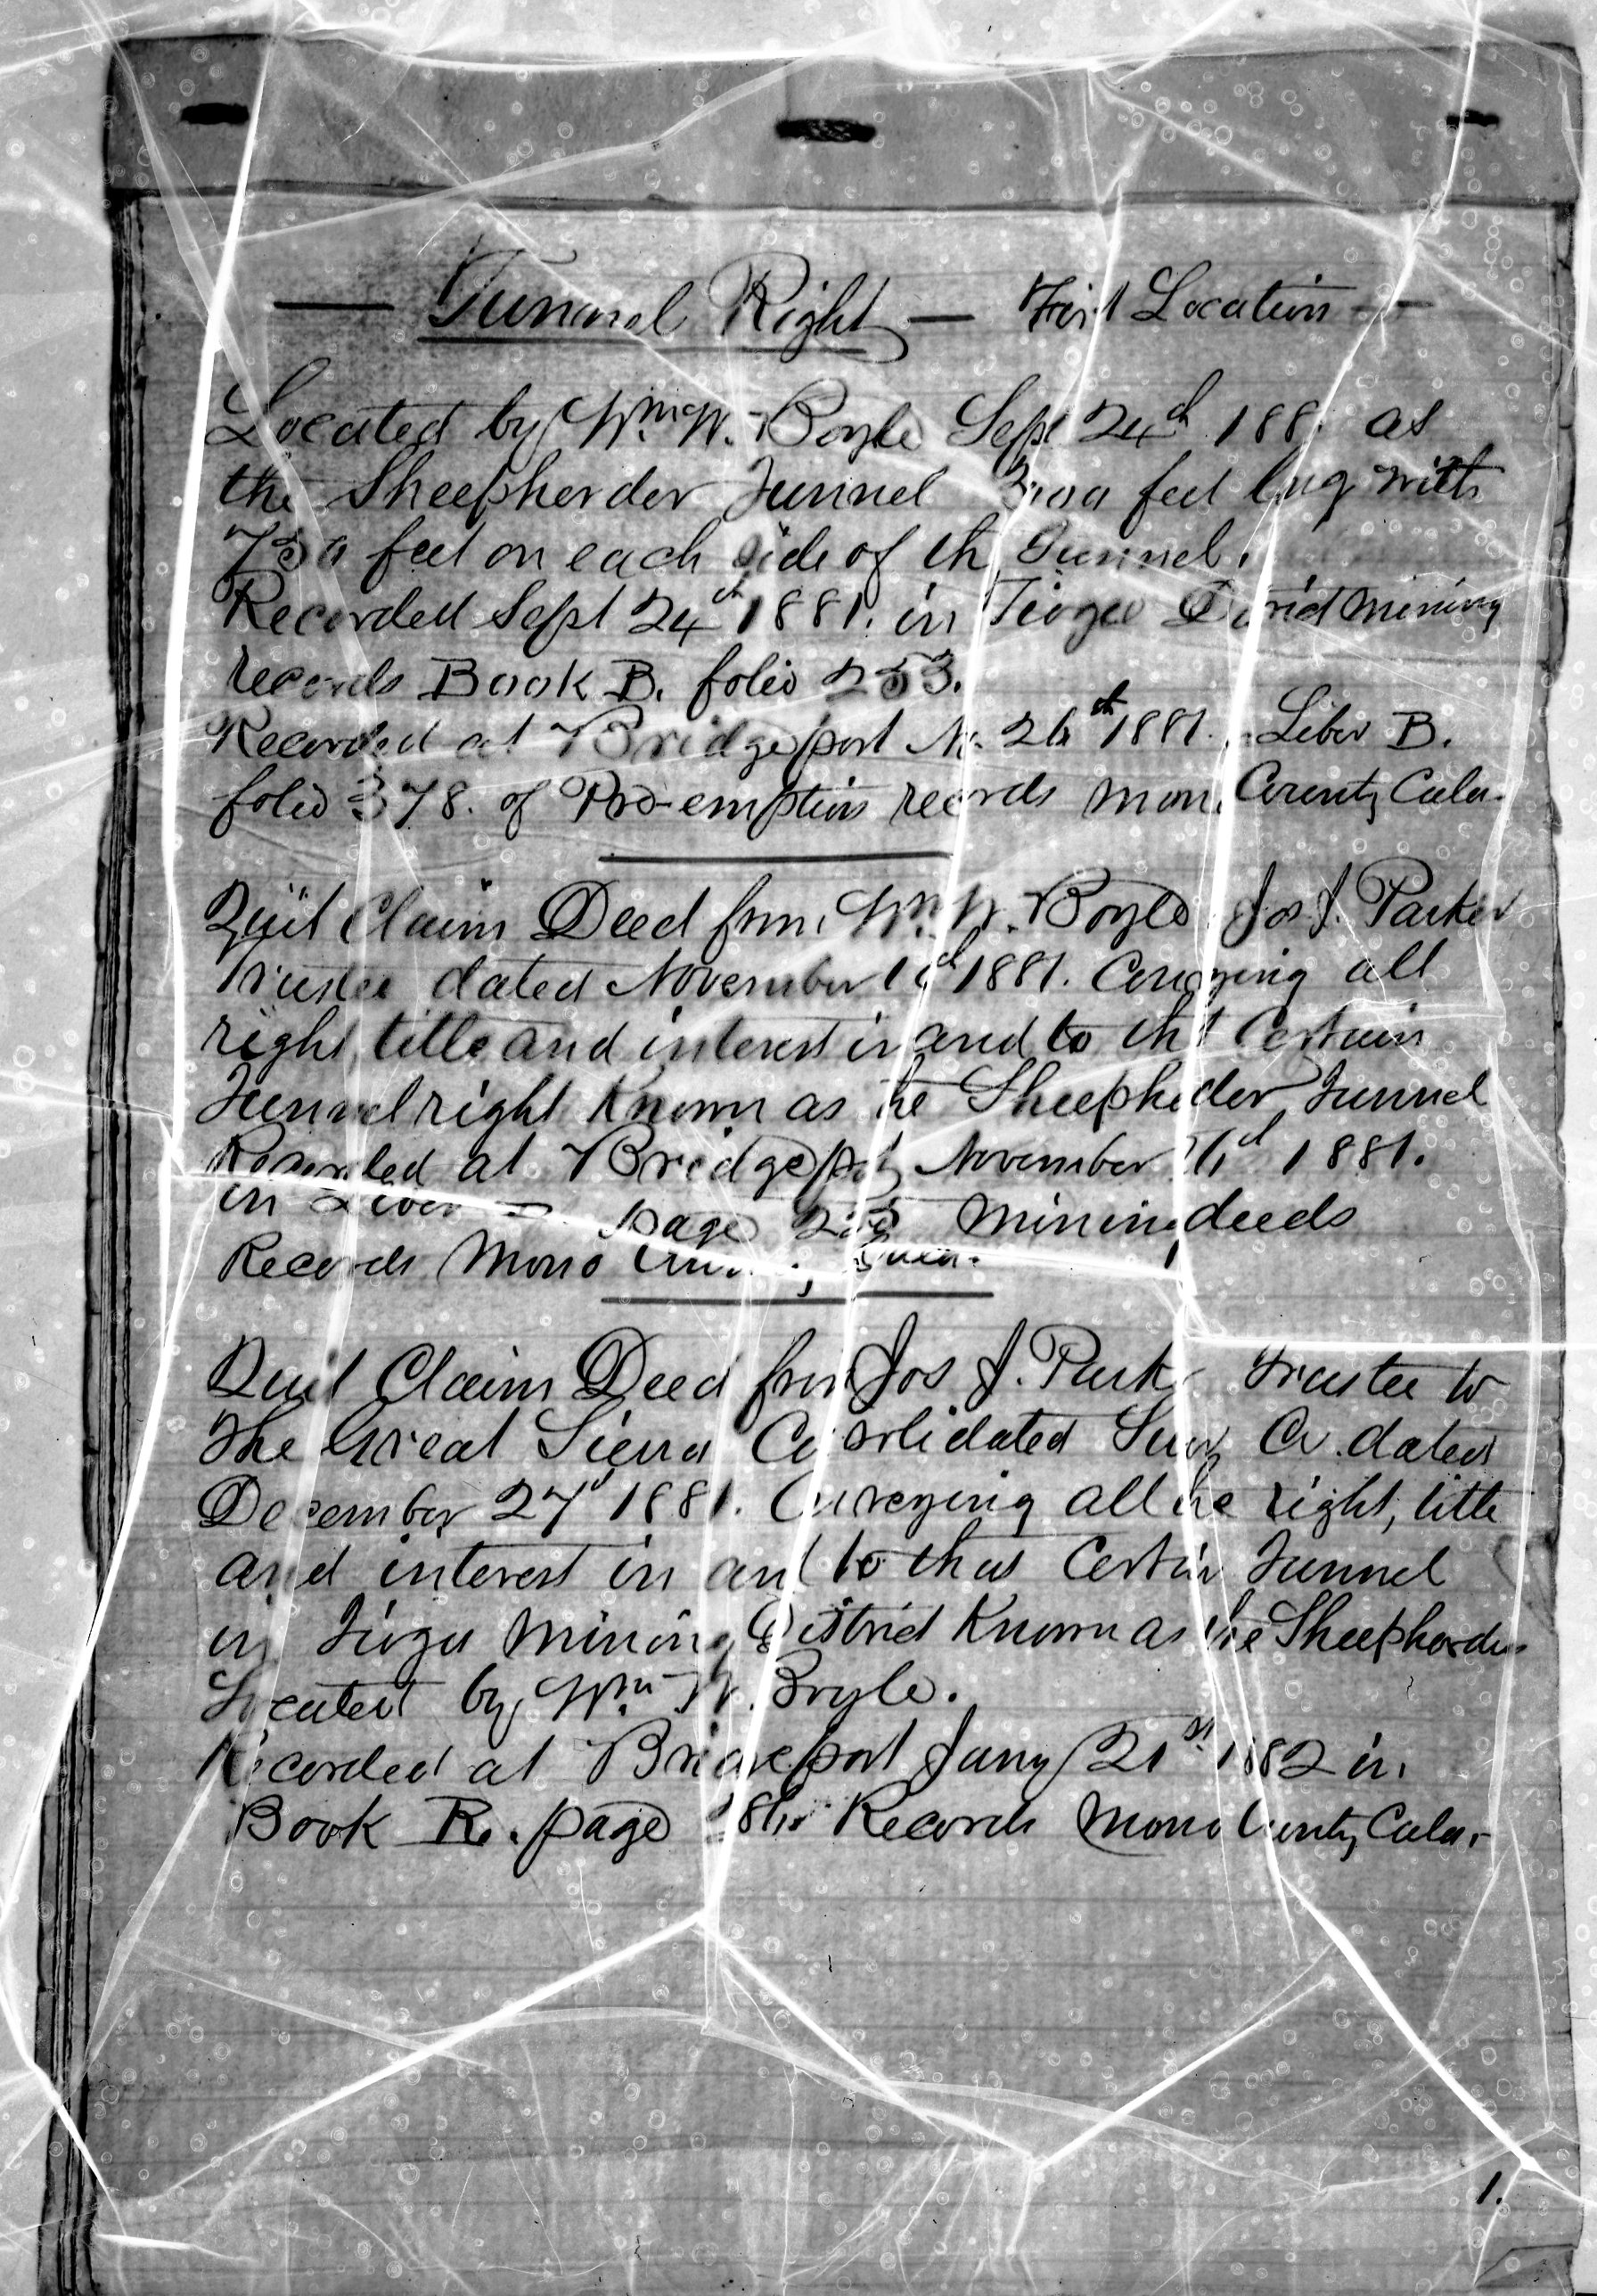 — Tunnel Right — First Location —
Located by Wm. W. Boyle Sept 24th 188 as
the Sheepherder Tunnel 3000 feet long with
750 feet on each side of the Tunnel.
Recorded Sept 24th 1881. in Tioga District Mining
records Book B. folio 253.
Recorded at Bridgeport 26th 1881. Liber B.
folio 378. of Pre-emption records Mono County Cala.
Quit Claim Deed from Wm. W. Boyle Jos J. Parker
Trustee dated November 1881. Conveying all
right, title and interest in and to that Certain
Tunnel right Known as the Sheepherder Tunnel
Recorded at Bridgeport November 1881.
in Liber page Mining deeds
Records Mono County
Quit Claim Deed from Jos J. Parker Trustee to
The Great Sierra Consolidated Co. dated
December 27th 1881. Conveying all the right, title
and interest in and to that Certain Tunnel
in Tioga Mining District Known as the Sheepherder
Located by Wm. W. Boyle.
Recorded at Bridgeport Jany 21st 1882 in
Book R. page Records Mono County Cala.
1.